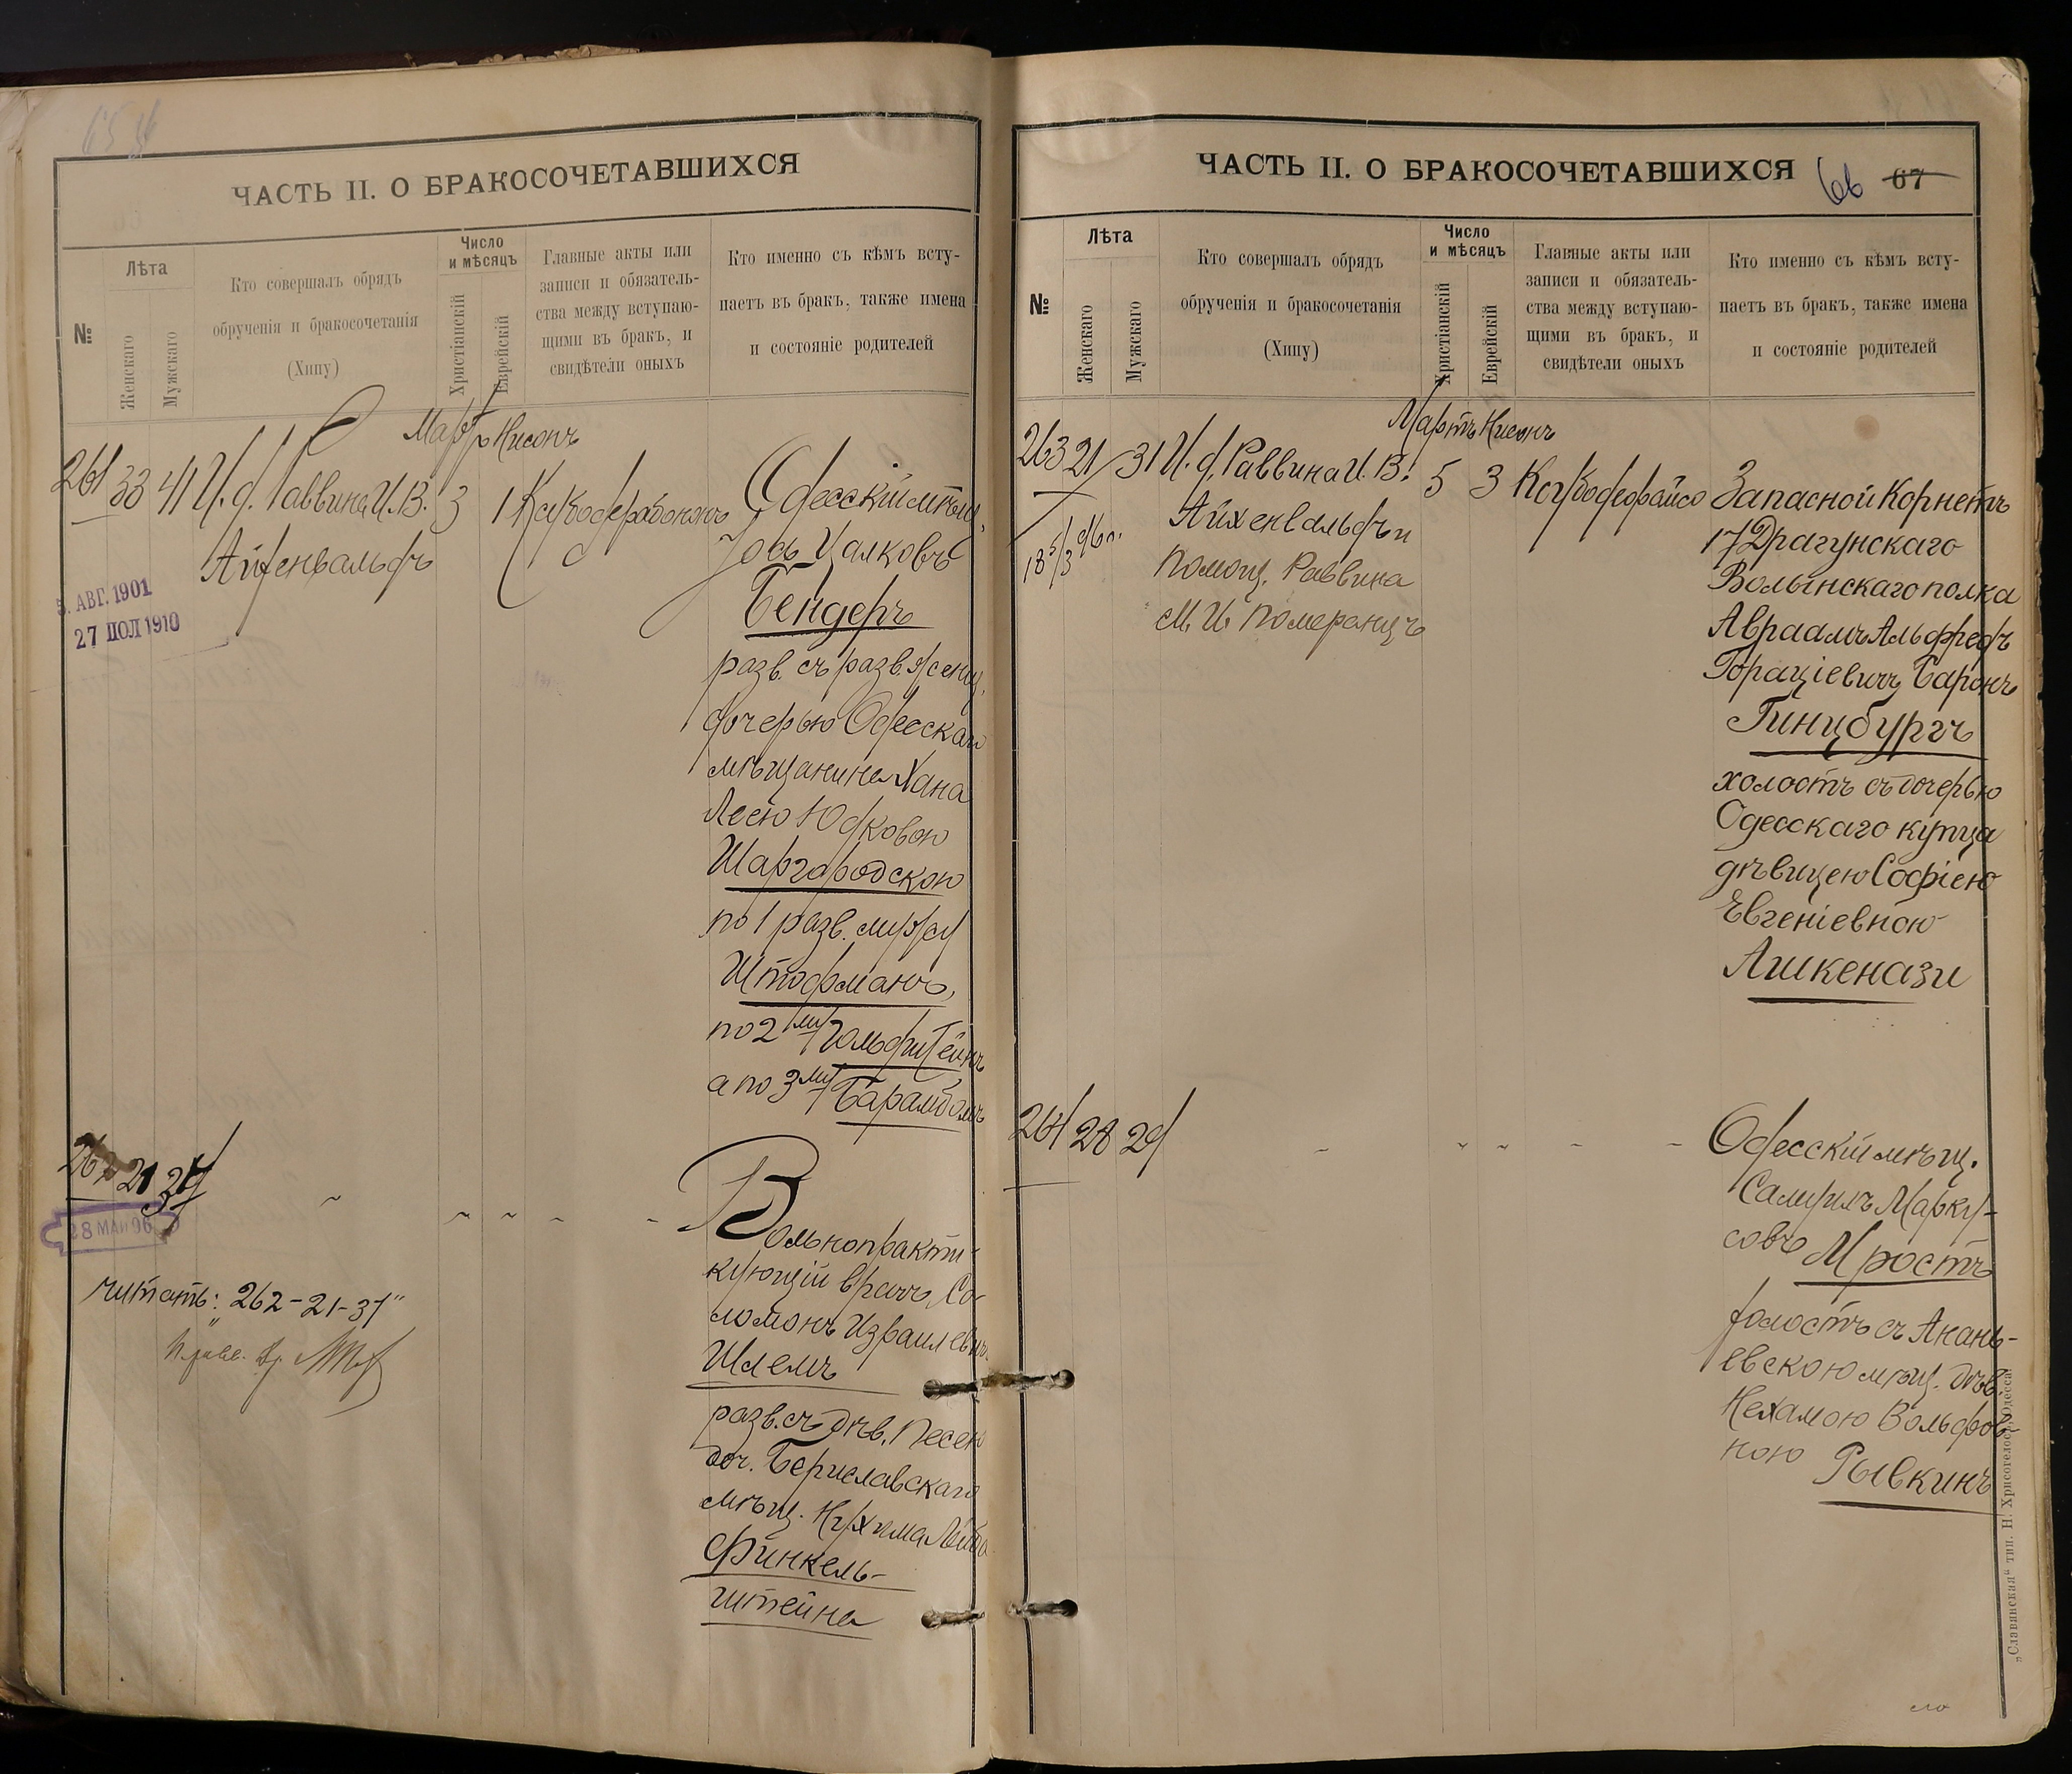 ЧАСТЬ II. О БРАКОСОЧЕТАВШИХСЯ
№
Лѣта
Женскаго
Мужскаго
Кто совершалъ обрядъ
обрученія и бракосочетанія
(Хипу)
Число
и мѣсяцъ
Христіанскій
Еврейскій
Главные акты или
записи и обязатель-
ства между вступаю-
щими въ бракъ, и
свидѣтели оныхъ
Кто именно съ кѣмъ всту-
паетъ въ бракъ, также имена
и состояніе родителей
Мартъ Нисонъ
261 33 41 И. д. Раввина И. В. 3 1
Айхенвальдъ
5. АВГ. 1901
27 ІЮЛ 1910
Одесскій мѣщ.
Цалковъ
Бендеръ
разв. съ разв. жену,
дочерью Одесскаго
мѣщанина Хана
Лесею Юдковою
Шаргородскою
по 1 разв. мужу
Штофманъ,
по 2 му Гольдштейнъ
а по 3 му
21
28 МАЯ 96
Вольнопракти-
кующій врачъ, Со-
ломонъ Израилевичъ
Шлемъ
разв. съ дѣв. Песею
доч. Бериславскаго
мѣщ. Нухима Лейба
Финкель-
штейна
читать: „262-21-37"
ЧАСТЬ II. О БРАКОСОЧЕТАВШИХСЯ 66 67
№
Лѣта
Женскаго
Мужскаго
Кто совершалъ обрядъ
обрученія и бракосочетанія
(Хипу)
Число
и мѣсяцъ
Христіанскій
Еврейскій
Главные акты или
записи и обязатель-
ства между вступаю-
щими въ бракъ, и
свидѣтели оныхъ
Кто именно съ кѣмъ всту-
паетъ въ бракъ, также имена
и состояніе родителей
Мартъ Нисонъ
263 21 31 И. д. Раввина И. В. 5 3
Айхенвальдъ и
Помощ. Раввина
М. И. Померанцъ
Запасной Корнетъ
17 Драгунскаго
Волынскаго полка
Авраамъ Альфредъ
Гораціевичъ Баронъ
Гинцбургъ
холостъ съ дочерью
Одесскаго купца
дѣвицею Софіею
Евгеніевною
Ашкенази
264 28 29
Одесскій мѣщ.
Самуилъ Марку-
совъ Мростъ
холостъ съ Анань-
евскою мѣщ. дѣв.
Нехамою Вольфов-
ною Рывкинъ
„Славянская“ тип. Н. Хрисогелосъ, Одесса.